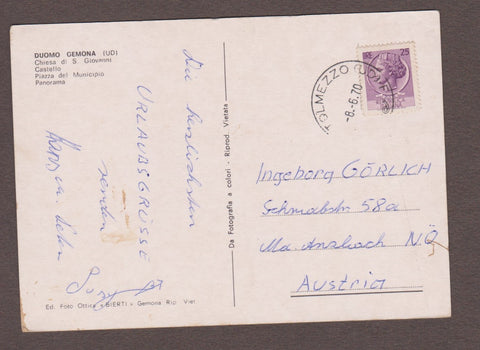 DUOMO GEMONA (UD)
Chiesa di S. Giovanni
Castello
Piazza del Municipio
Panorama
Die herzlichsten
URLAUBSGRÜSSE
senden
Ed. Foto Ottica «BIERTI» Gemona Rip. Viet.
Da Fotografia a colori - Riprod. Vietata
TOLMEZZO (UDINE)
-8.-6.70
Ingeborg GÖRLICH
Schmalstr. 58a
Ma. Anzbach N.Ö
Austria